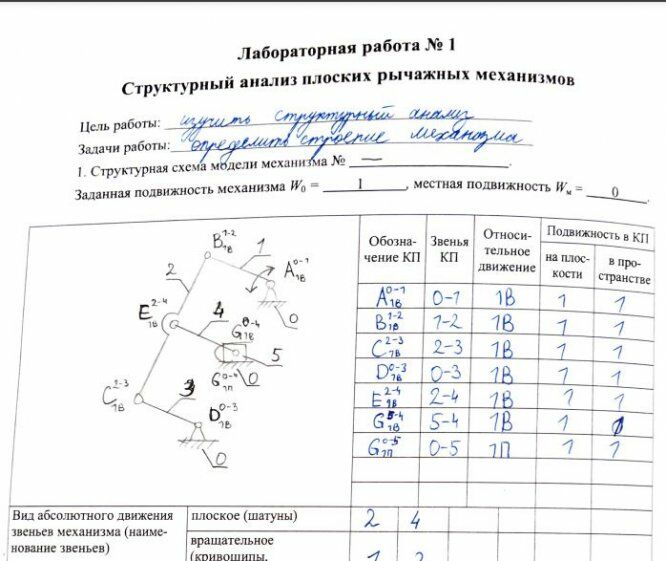 Лабораторная работа № 1
Структурный анализ плоских рычажных механизмов
Цель работы: изучить структурный анализ
Задачи работы: определить строение механизма
1. Структурная схема модели механизма № —
Заданная подвижность механизма W₀ = 1, местная подвижность Wм = 0.
B 1-2 1В
1
A 0-1 1В
2
0
E 2-4 1В
4
G 0-4 1В
5
G 0-4 1П
0
C 2-3 1В
3
D 0-3 1В
0
Обозна-
чение КП
Звенья
КП
Относи-
тельное
движение
Подвижность в КП
на плос-
кости
в про-
странстве
A 0-1 1В 0-1 1В 1 1
B 1-2 1В 1-2 1В 1 1
C 2-3 1В 2-3 1В 1 1
D 0-3 1В 0-3 1В 1 1
E 2-4 1В 2-4 1В 1 1
G 5-4 1В 5-4 1В 1 1
G 0-5 1П 0-5 1П 1 1
Вид абсолютного движения
звеньев механизма (наиме-
нование звеньев)
плоское (шатуны) 2 4
вращательное
(кривошипы, 1 3